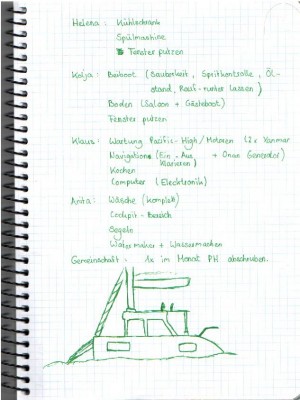 Helena : Kühlschrank
Spülmaschine
Fenster putzen
Kaija : Beiboot (Sauberkeit, Spritkontrolle, Öl-
stand, Rauf-runter lassen)
Boden (Saloon + Gästeboot)
Fenster putzen
Klaus : Wartung Pacific-High/Motoren (2x Yanmar
Navigation (Ein-Aus + Onan Generator)
Klarieren)
Kochen
Computer (Elecktronik)
Anita : Wäsche (komplett)
Cockpit-Bereich
Segeln
Watermaker + Wassermachen
Gemeinschaft : 1x im Monat PH abschruben.